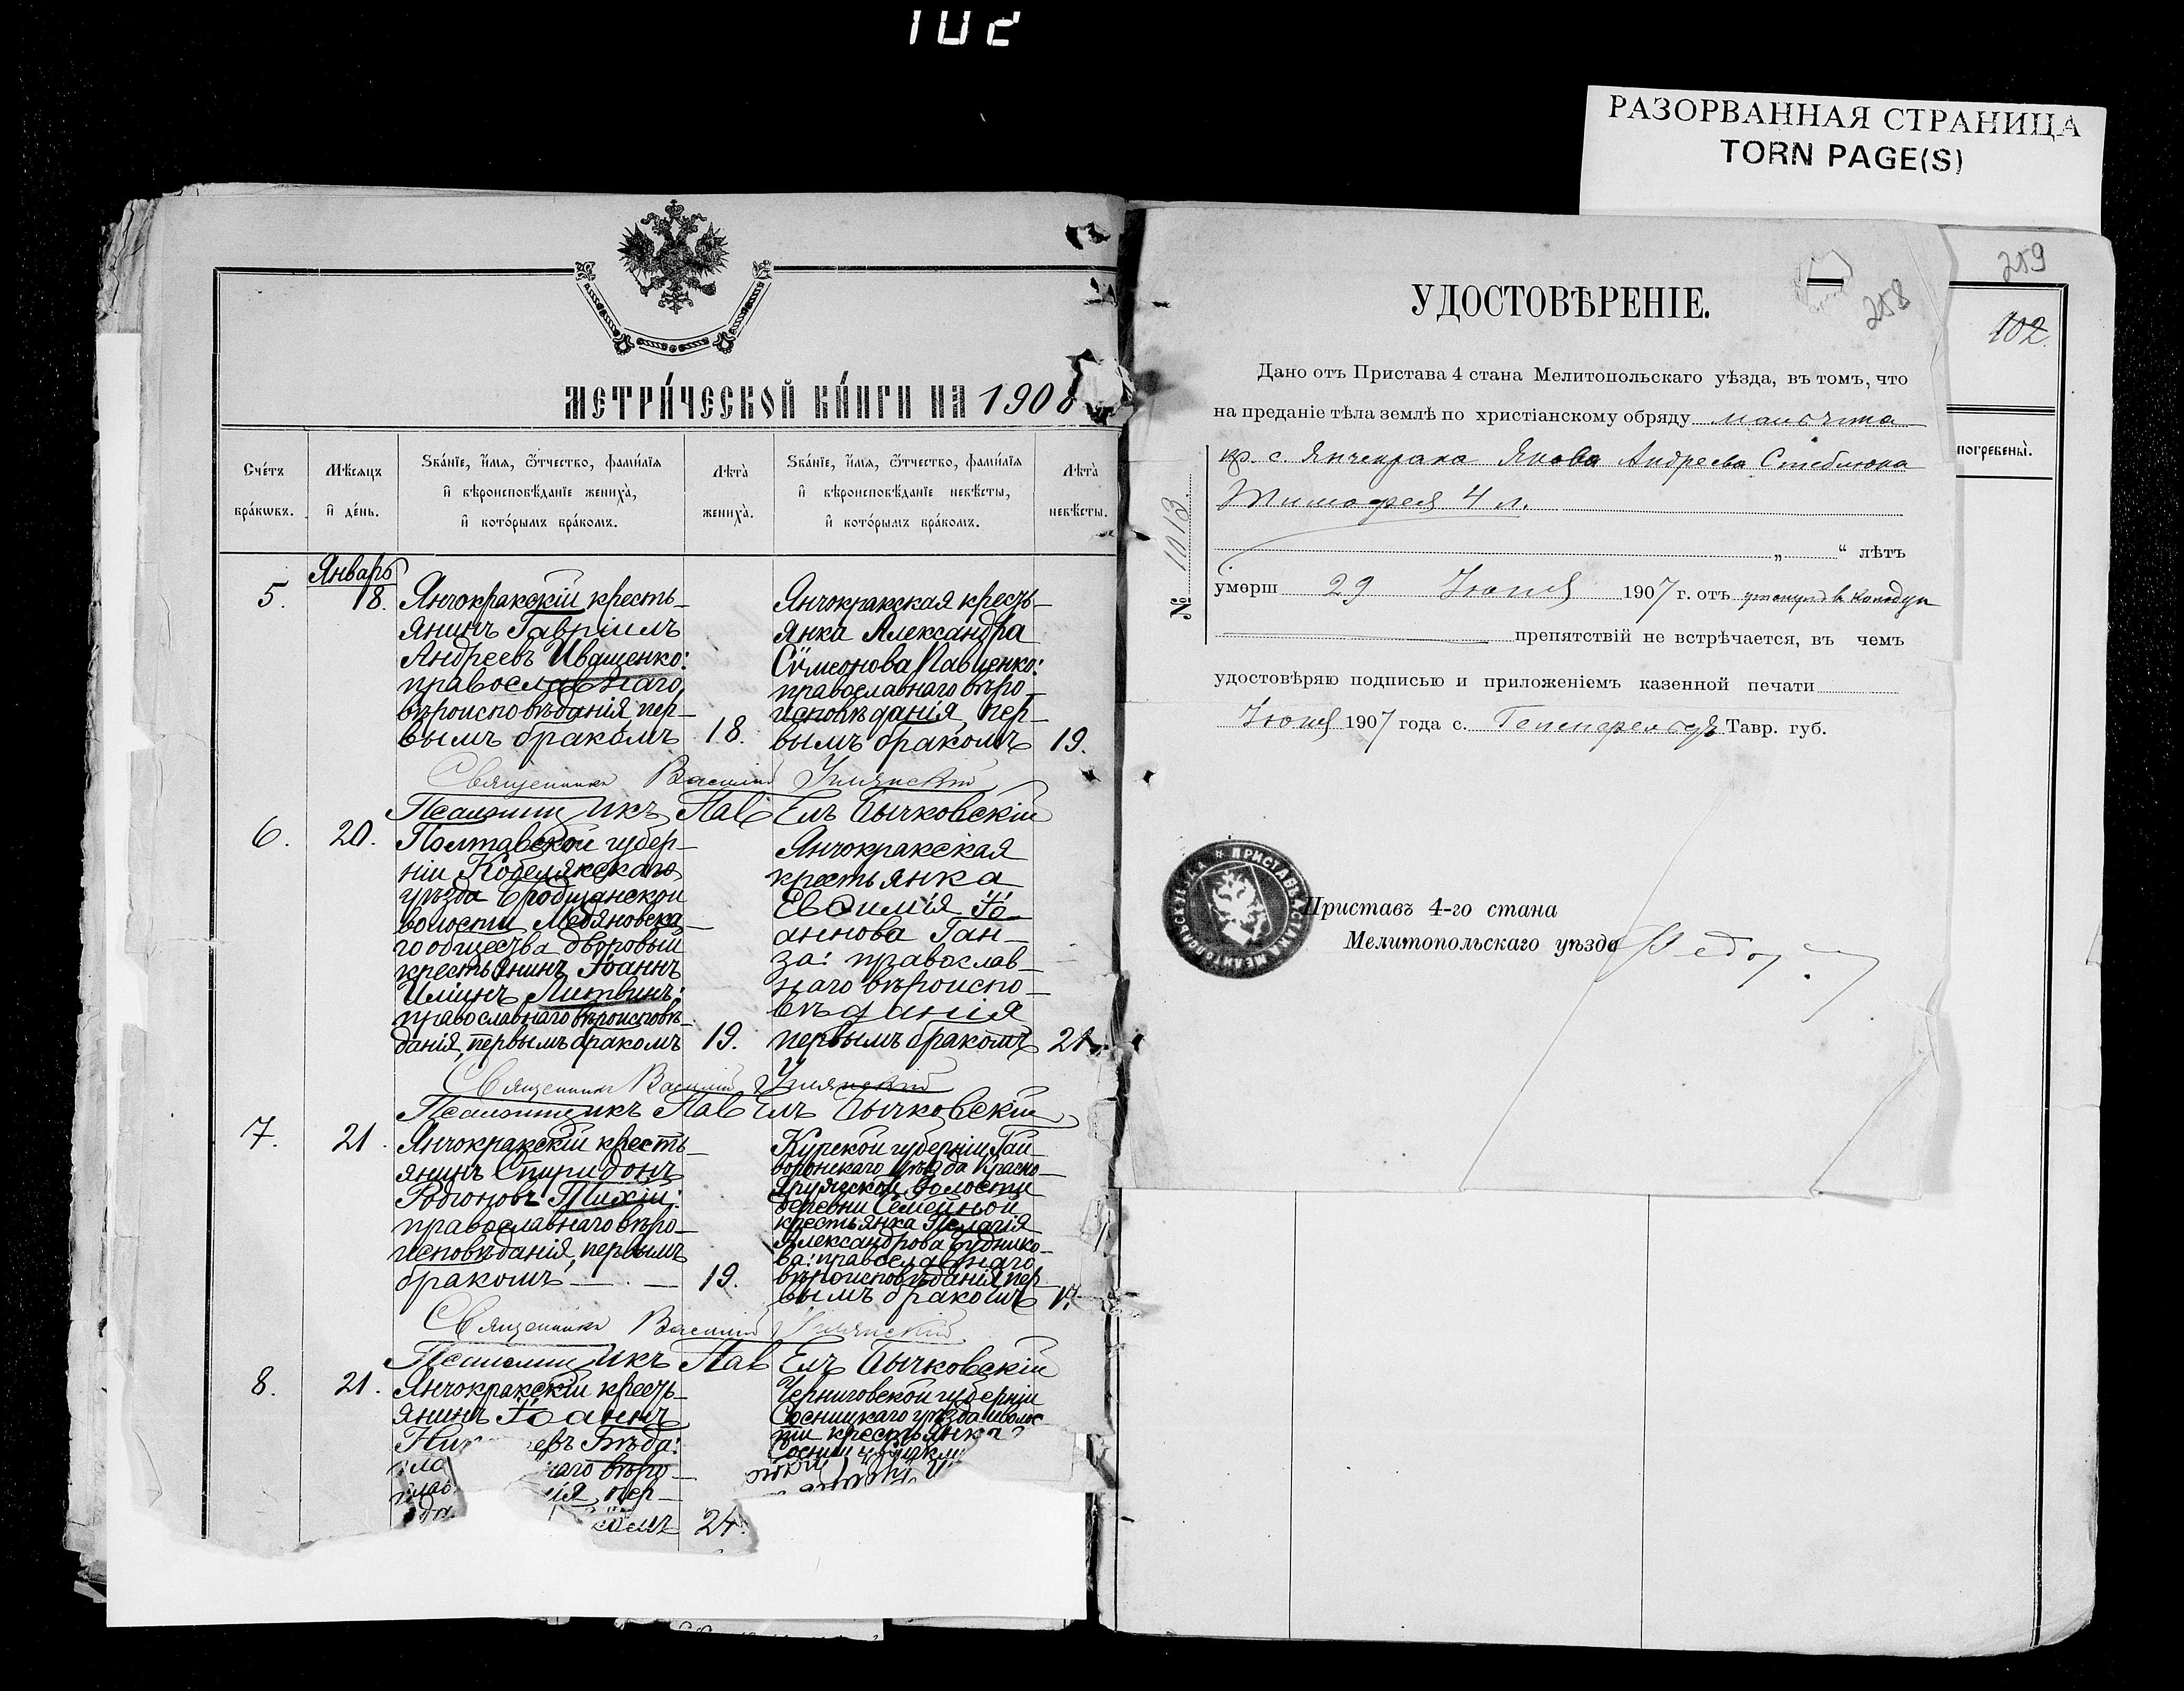 102
РАЗОРВАННАЯ СТРАНИЦА
TORN PAGE(S)
МЕТРИ́ЧЕСКОЙ КНИ́ГИ НА 1908
Сче́тъ бра́кωвъ.
Мѣ́сяцъ и҆ де́нь.
Ѕва́нїе, и҆́мѧ, ѻ҆́тчество, фами́лїѧ
и҆ вѣроисповѣ́данїе жениха̀,
и҆ кото́рымъ бра́комъ.
Лѣта̀ жениха̀.
Ѕва́нїе, и҆́мѧ, ѻ҆́тчество, фами́лїѧ
и҆ вѣроисповѣ́данїе невѣ́сты,
и҆ кото́рымъ бра́комъ.
Лѣта̀ невѣ́сты.
Январь
5.
18.
Янчокракскій кресть-
янинъ Гавріилъ
Андреевъ Иващенко:
православнаго
вѣроисповѣданія, пер-
вымъ бракомъ
18.
Янчокракская кресть-
янка Александра
Сѵмеонова Павленко:
православнаго вѣро-
исповѣданія, пер-
вымъ бракомъ
19.
Священникъ Василій
Псаломщикъ Павелъ Бычковскій
6.
20.
Полтавской губер-
ніи Кобелякскаго
уѣзда Бродщанской
волости
го общества дворовый
крестьянинъ Іоаннъ
Иліинъ Литвинъ:
православнаго вѣроисповѣ-
данія, первымъ бракомъ
19.
Янчокракская
крестьянка
Евѳимія Іо-
аннова Ган-
за: православ-
наго вѣроиспо-
вѣданія
первымъ бракомъ
21.
Священникъ Василій
Псаломщикъ Павелъ Бычковскій
7.
21.
Янчокракскій кресть-
янинъ Спиридонъ
Родіоновъ Тихій:
православнаго вѣро-
исповѣданія, первымъ
бракомъ
19.
Курской губерніи Гай-
воронскаго уѣзда Красно-
Яружской волости
деревни Семейной
крестьянка Пелагія
Александрова Будинко-
ва: православнаго
вѣроисповѣданія, пер-
вымъ бракомъ
Священникъ Василій
Псаломщикъ Павелъ Бычковскій
8.
21.
Янчокракскій кресть-
янинъ Іоаннъ
евъ Бѣда:
наго вѣро-
ія, пер-
комъ
24.
Черниговской губерніи
Сосницкаго уѣзда и волос-
ти крестьянка
259
102.
погребены̀.
УДОСТОВѢРЕНІЕ.
258
Дано отъ Пристава 4 стана Мелитопольскаго уѣзда, въ томъ, что
на преданіе тѣла землѣ по христіанскому обряду мальчика
кр. с. Янчекрака Якова Андреева Стеблюка
Тимофея 4 л.
„ “ лѣтъ
умерш 29 Іюня 1907 г. отъ утонулъ въ колодцѣ
препятствій не встрѣчается, въ чемъ
удостовѣряю подписью и приложеніемъ казенной печати
Іюня 1907 года с. Тав. губ.
№ 1013
Приставъ 4-го стана
Мелитопольскаго уѣзда